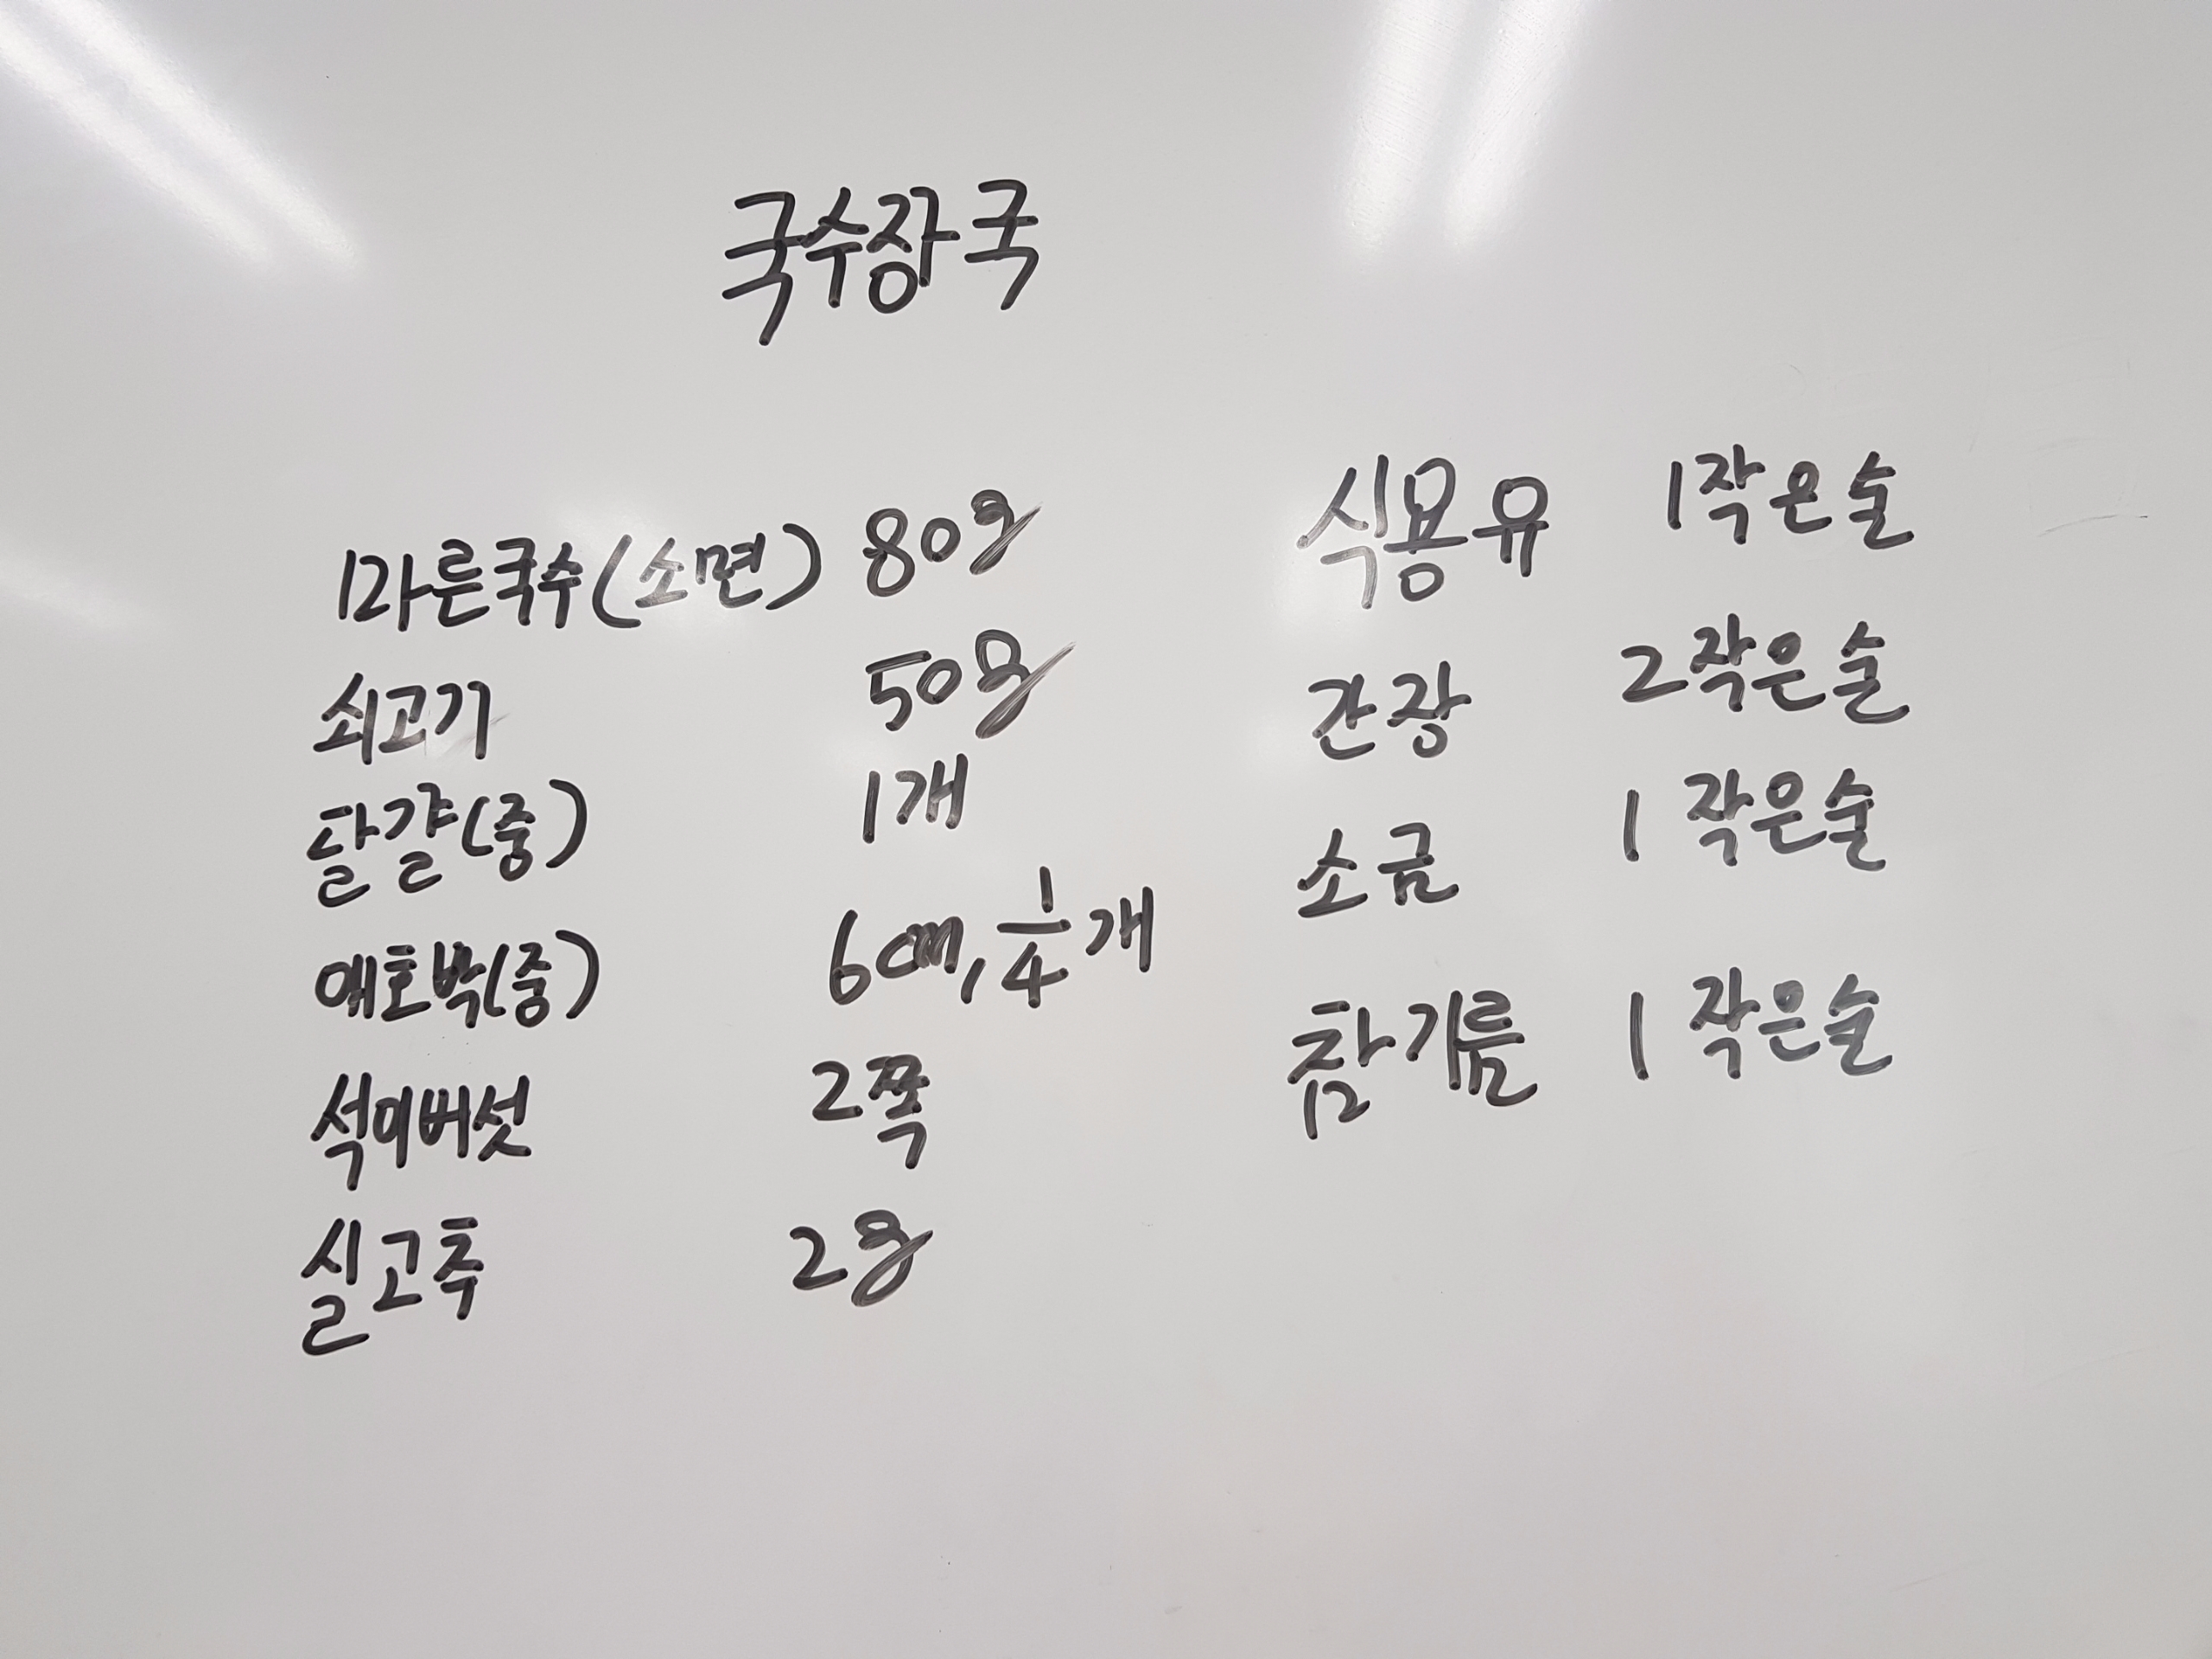 국수장국
마른국수(소면) 80g
쇠고기 50g
달걀(중) 1개
애호박(중) 6cm, 1/4개
석이버섯 2쪽
실고추 2g
식용유 1작은술
간장 2작은술
소금 1 작은술
참기름 1 작은술